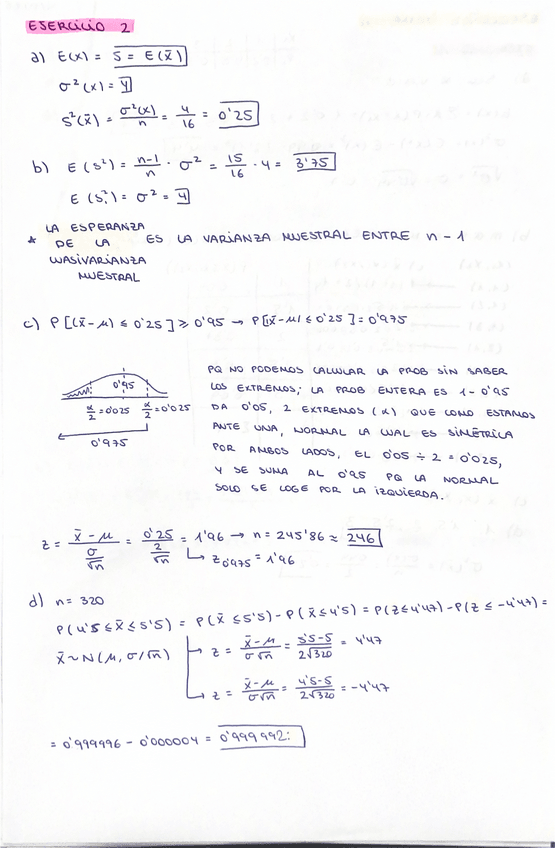 EJERCICIO 2
a) E(x) = 5 = E(x̄)
σ²(x) = 4
S²(x̄) = σ²(x)/n = 4/16 = 0'25
b) E(s²) = n-1/n · σ² = 15/16 · 4 = 3'75
E(s₁²) = σ² = 4
* LA ESPERANZA DE LA WASIVARIANZA MUESTRAL ES LA VARIANZA MUESTRAL ENTRE n-1
c) P[(x̄-μ) ≤ 0'25] ≥ 0'95 → P[|x̄-μ| ≤ 0'25] = 0'975
0'95
α/2 = 0'025 α/2 = 0'025
0'975
PQ NO PODEMOS CALCULAR LA PROB SIN SABER
LOS EXTREMOS; LA PROB ENTERA ES 1-0'95
DA 0'05, 2 EXTREMOS (α) QUE COMO ESTAMOS
ANTE UNA, NORMAL LA CUAL ES SIMÉTRICA
POR AMBOS LADOS, EL 0'05 ÷ 2 = 0'025,
Y SE SUMA AL 0'95 PQ LA NORMAL
SOLO SE COGE POR LA IZQUIERDA.
z = x̄-μ/σ/√n = 0'25/2/√n = 1'96 → n = 245'86 ≈ 246
↳ z0'975 = 1'96
d) n = 320
P(4'5 ≤ x̄ ≤ 5'5) = P(x̄ ≤ 5'5) - P(x̄ ≤ 4'5) = P(z ≤ 4'47) - P(z ≤ -4'47) =
x̄ ~ N(μ, σ/√n)
→ z = x̄-μ/σ√n = 5'5-5/2√320 = 4'47
→ z = x̄-μ/σ√n = 4'5-5/2√320 = -4'47
= 0'999996 - 0'000004 = 0'999992: